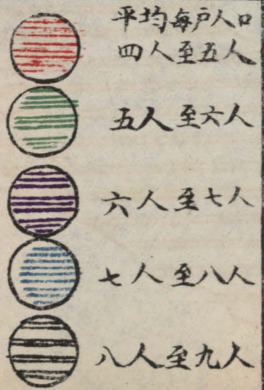 平均每户人口
四人至五人
五人至六人
六人至七人
七人至八人
八人至九人